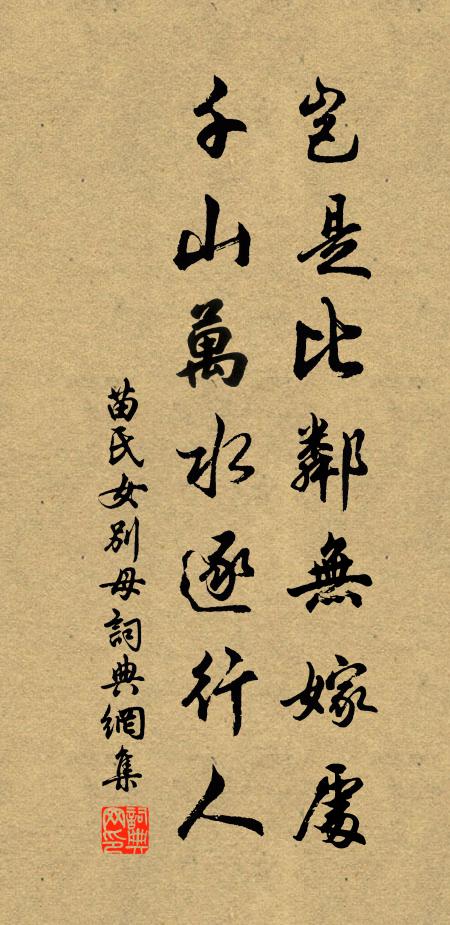 豈是比鄰無嫁處
千山萬水逐行人
苗氏女別母詞典網集
詞典網印